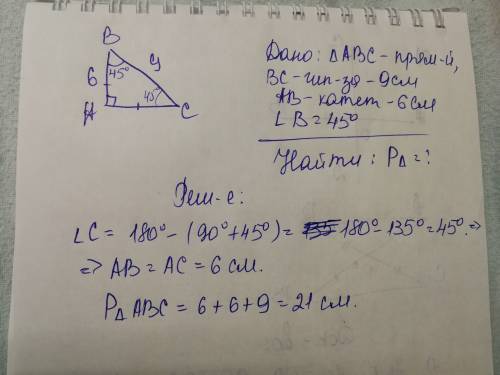 B
45°
9
6
45°
A
C
Дано: ΔABC - прям-й,
BC - гип-за - 9см
AB - катет - 6см
∠B = 45°
Найти: P△ = ?
Реш-е:
∠C = 180° - (90° + 45°) = 180° - 135° = 45°. =>
=> AB = AC = 6 см.
P△ ABC = 6 + 6 + 9 = 21 см.